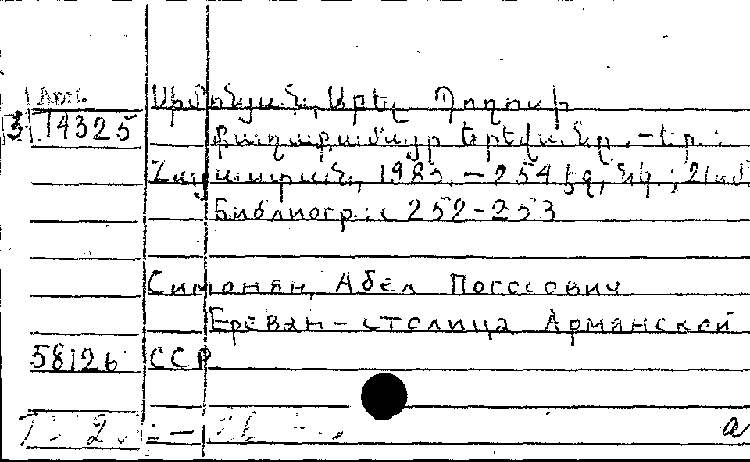 Арм.
Սիմոնյան, Աբել Պողոսի
3 14325
Քաղաքամայր Երևանը. - Եր.:
Հայաստան, 1983. - 254 էջ, նկ.; 21սմ
Библиогр.: с 252-253
Симонян, Абел Погосович
Ереван - столица Армянской
58126 ССР
а